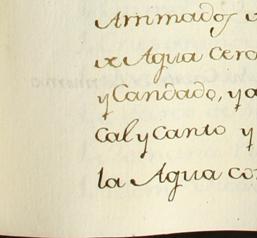 Arrimados
de Agua cerc
y Candado, y a
Cal y Canto y
la Agua con